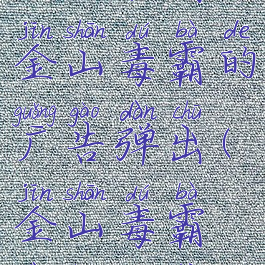 jīn shān dú bà de
金山毒霸的
guǎng gào dàn chū
广告弹出(
jīn shān dú bà
金山毒霸